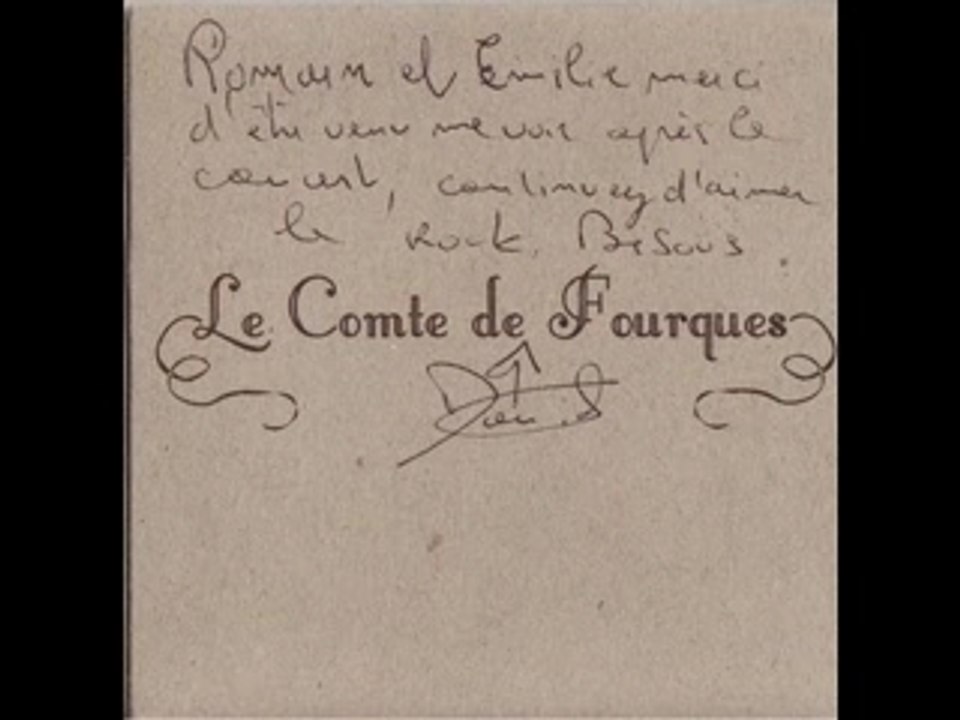 Romain et Emilie merci
d'être venu me voir après le
concert, continuez d'aimer
le Rock. Bisous.
Le Comte de Fourques
David